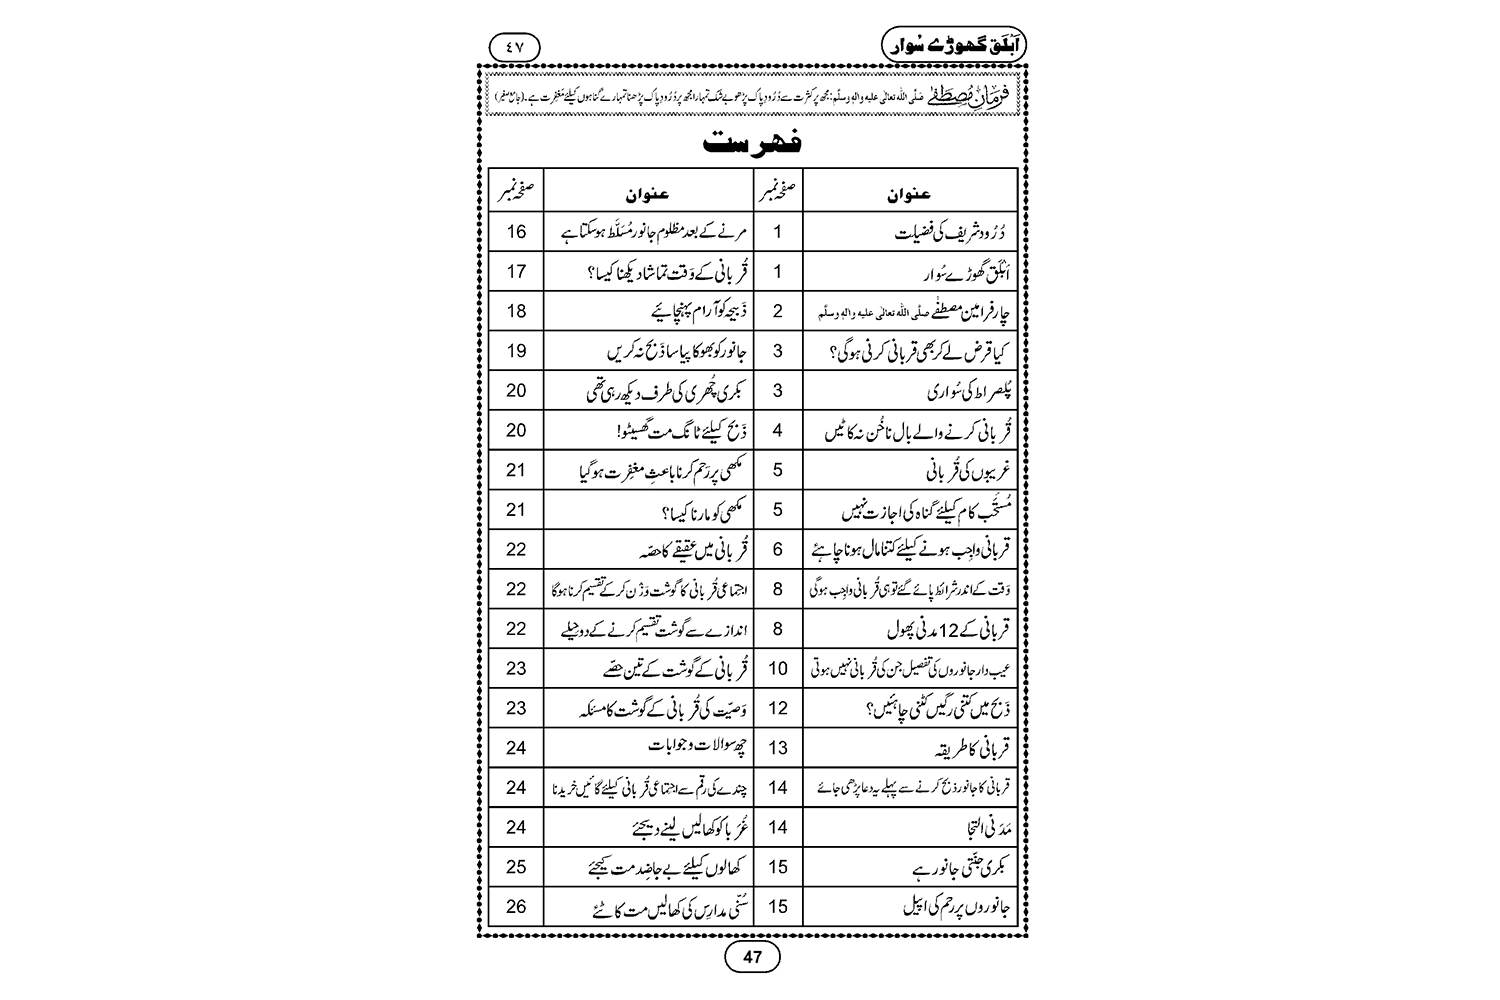 اَبْلَق گھوڑے سُوار
٤٧
فرمانِ مُصطَفٰے صلَّی اللہ تعالٰی علیہ واٰلہٖ وسلَّم: مجھ پر کثرت سے دُرُودِ پاک پڑھو بے شک تمہارا مجھ پر دُرُودِ پاک پڑھنا تمہارے گناہوں کیلئے مَغفِرت ہے۔ (جامع صغیر)
فہرست
عنوان صفحہ نمبر عنوان صفحہ نمبر
دُرُود شریف کی فضیلت 1 مرنے کے بعد مظلوم جانور مُسَلَّط ہوسکتا ہے 16
اَبْلَق گھوڑے سُوار 1 قُربانی کے وَقت تماشا دیکھنا کیسا؟ 17
چار فرامین مصطفٰے صلَّی اللہ تعالٰی علیہ واٰلہٖ وسلَّم 2 ذَبیحہ کو آرام پہنچائیے 18
کیا قرض لے کر بھی قربانی کرنی ہوگی؟ 3 جانور کو بھوکا پیاسا ذَبح نہ کریں 19
پُلصراط کی سُواری 3 بکری چُھری کی طرف دیکھ رہی تھی 20
قُربانی کرنے والے بال ناخُن نہ کاٹیں 4 ذَبح کیلئے ٹانگ مت گھسیٹو! 20
غریبوں کی قُربانی 5 مکھی پر رَحم کرنا باعثِ مغفِرت ہوگیا 21
مُستَحَب کام کیلئے گناہ کی اجازت نہیں 5 مکھی کو مارنا کیسا؟ 21
قربانی واجِب ہونے کیلئے کتنا مال ہونا چاہئے 6 قُربانی میں عقیقے کا حصّہ 22
وَقت کے اندر شرائط پائے گئے تو ہی قُربانی واجِب ہوگی 8 اجتماعی قُربانی کا گوشت وَزْن کرکے تقسیم کرنا ہوگا 22
قربانی کے 12 مدنی پھول 8 اندازے سے گوشت تقسیم کرنے کے دو حِیلے 22
عیب دار جانوروں کی تفصیل جن کی قُربانی نہیں ہوتی 10 قُربانی کے گوشت کے تین حصّے 23
ذَبح میں کتنی رگیں کٹنی چاہئیں؟ 12 وَصیّت کی قُربانی کے گوشت کا مسئلہ 23
قربانی کا طریقہ 13 چھ سوالات و جوابات 24
قربانی کا جانور ذبح کرنے سے پہلے یہ دعا پڑھی جائے 14 چندے کی رقم سے اجتماعی قُربانی کیلئے گائیں خریدنا 24
مَدَنی التجا 14 غُرَبا کو کھالیں لینے دیجئے 24
بکری جنّتی جانور ہے 15 کھالوں کیلئے بے جا ضِد مت کیجئے 25
جانوروں پر رحم کی اپیل 15 سُنّی مدارِس کی کھالیں مت کاٹئے 26
47